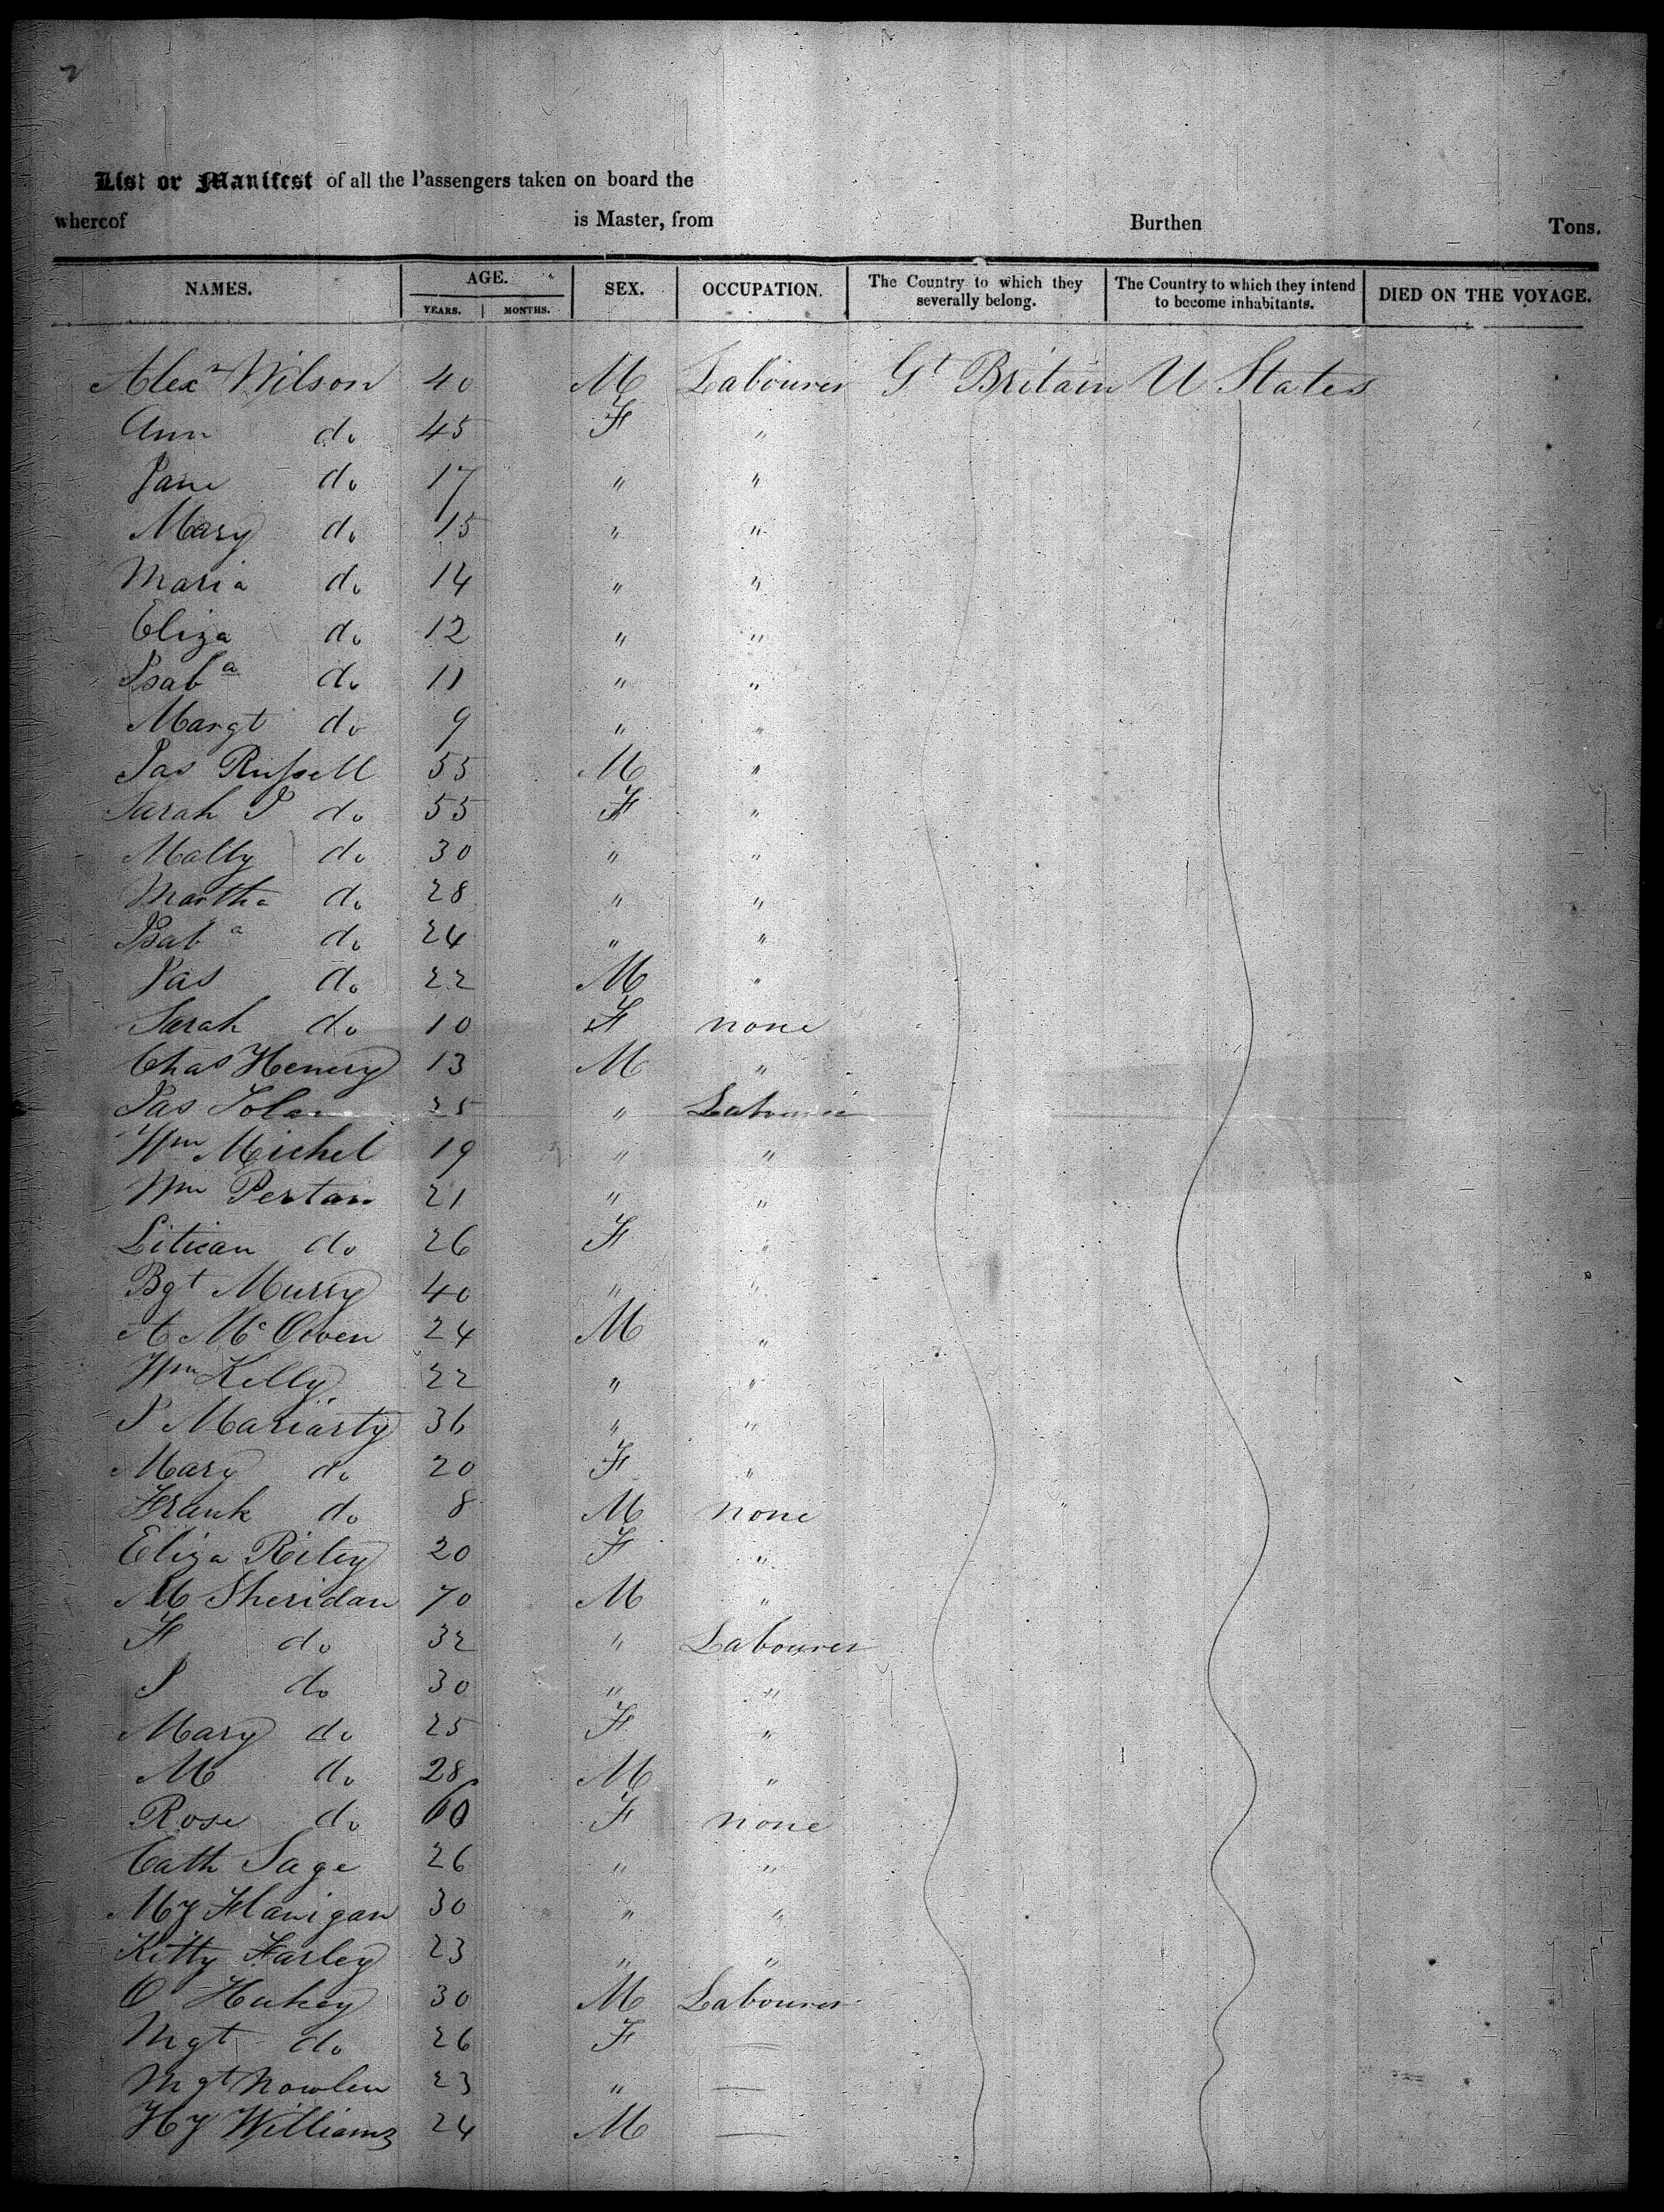 2
List or Manifest of all the Passengers taken on board the
whereof is Master, from Burthen Tons.
NAMES. AGE. SEX. OCCUPATION. The Country to which they severally belong. The Country to which they intend to become inhabitants. DIED ON THE VOYAGE.
YEARS. MONTHS.
Alexr Wilson 40 M Labourer Gt Britain U States
Ann do 45 F "
Jane do 17 " "
Mary do 15 " "
Maria do 14 " "
Eliza do 12 " "
Isaba do 11 " "
Margt do 9 " "
Jas Russell 55 M "
Sarah J do 55 F "
Mally do 30 " "
Martha do 28 " "
Isaba do 24 " "
Jas do 22 M "
Sarah do 10 F none
Chas Henery 13 M "
Jas 25 " Labourer
Wm Michel 19 " "
Wm Pertan 21 " "
Litican do 26 F "
Bgt Murry 40 " "
A McOwen 24 M "
Wm Kelly 22 " "
P Mariarty 36 " "
Mary do 20 F "
Frank do 8 M none
Eliza Riley 20 F "
M Sheridan 70 M "
F do 32 " Labourer
P do 30 " "
Mary do 25 F "
M do 28 M "
Rose do 60 F none
Cath Sage 26 " "
My Flanigan 30 " "
Kitty Farley 23 " "
O Hukey 30 M Labourer
Mgt do 26 F —
Mgt Nowlen 23 " —
Hy Williams 24 M —